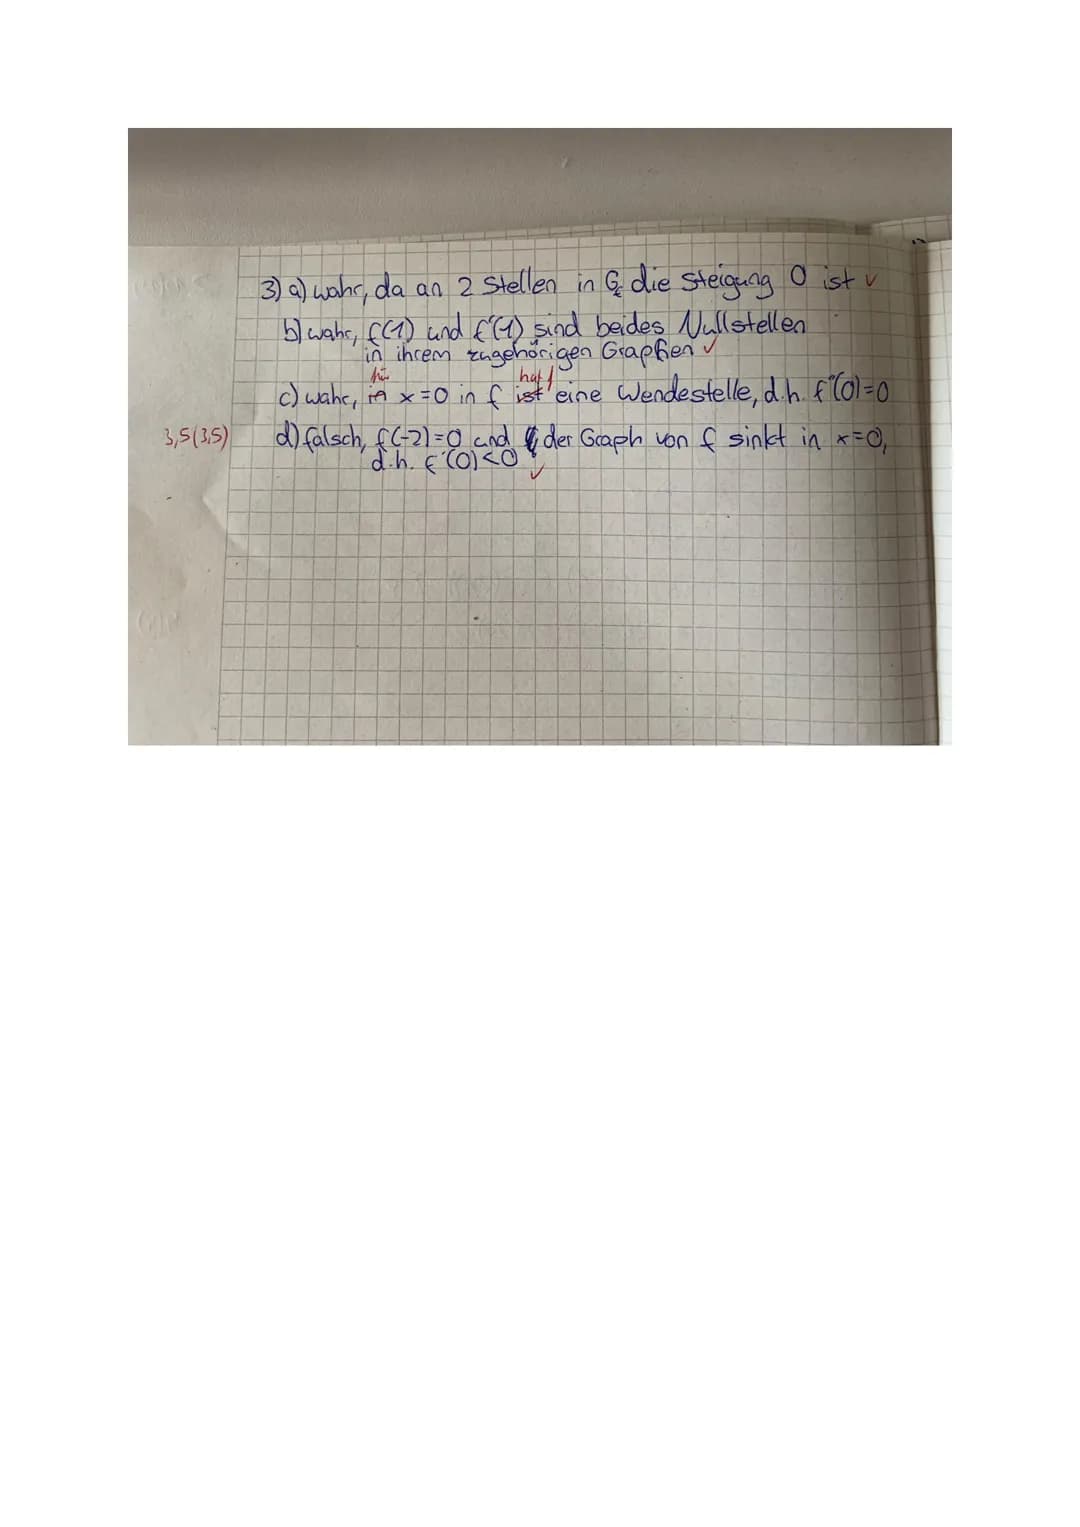 3) a) wahr, da an 2 Stellen in G_f die Steigung 0 ist ✓
b) wahr, f(1) und f'(1) sind beides Nullstellen
in ihrem zugehörigen Graphen ✓
für hat
c) wahr, in x=0 in f ist eine Wendestelle, d.h. f''(0)=0
3,5(3,5) d) falsch, f(-2)=0 und der Graph von f sinkt in x=0,
d.h. f'(0)<0 ✓